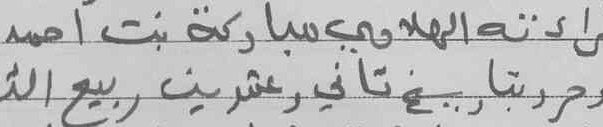 رادته الهلامي مباركة بنت احمد
وحرر بتاريخ تاني وعشرين ربيع الث